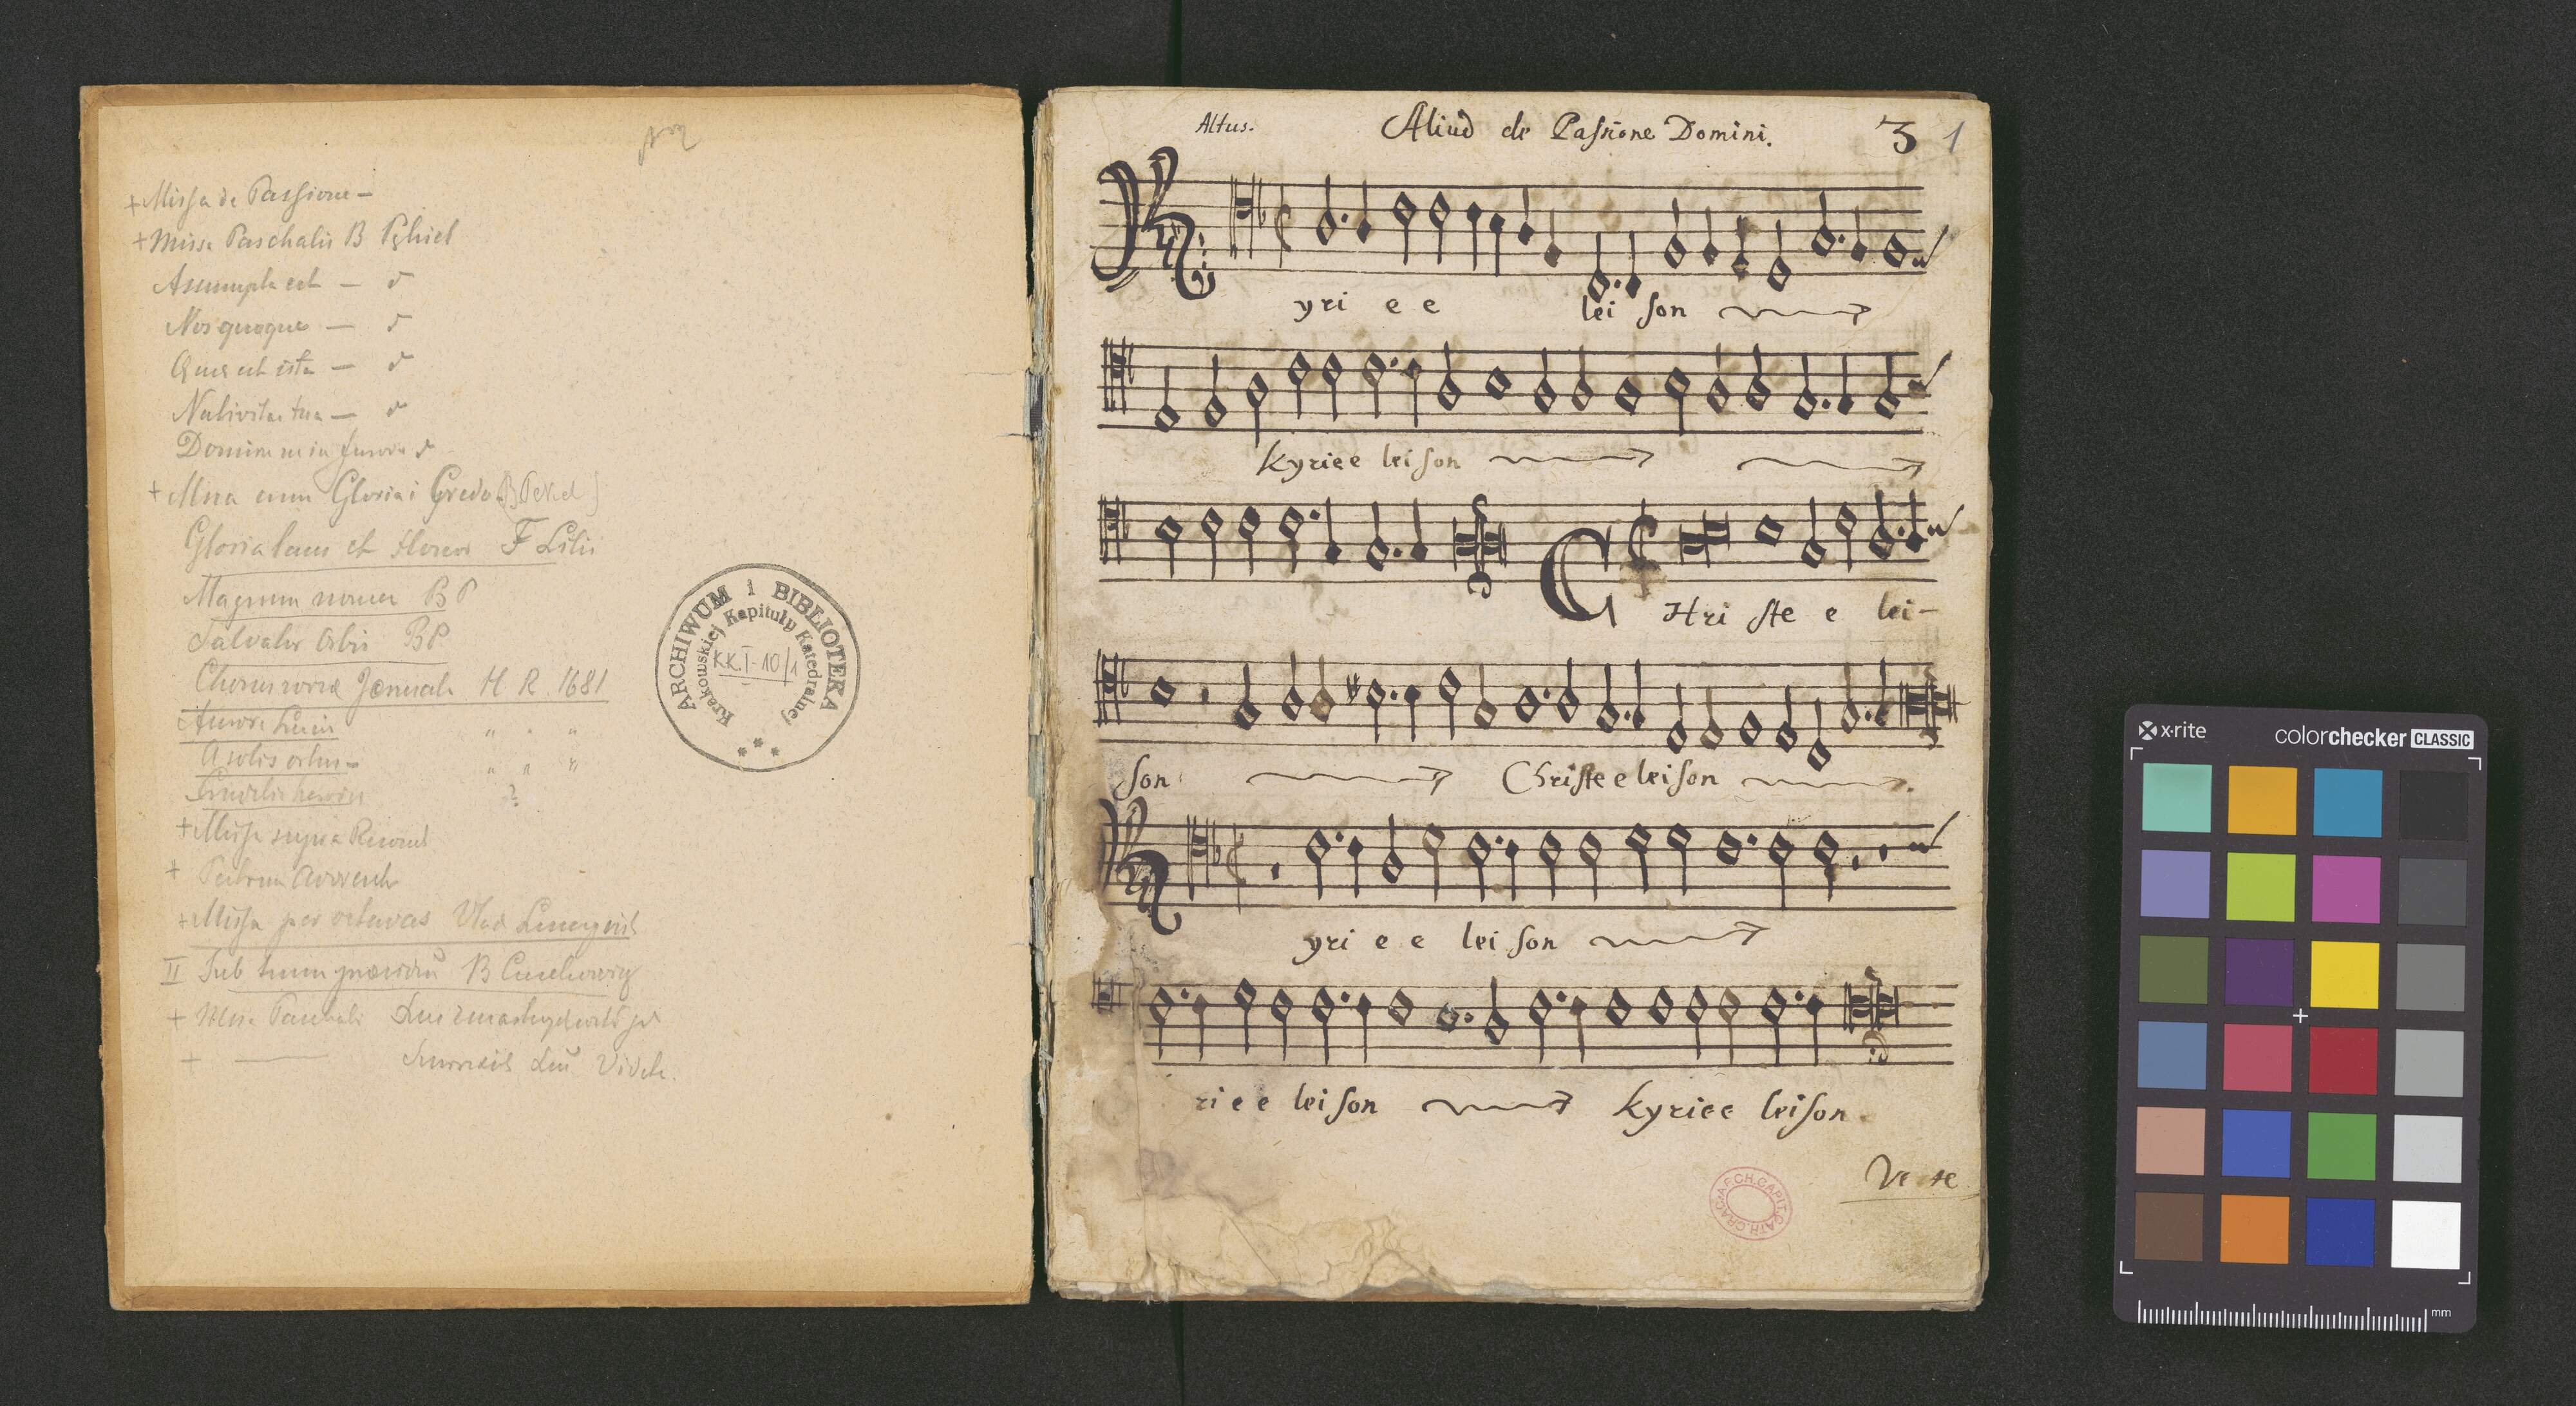 + Missa de Passione –
+ Missa Paschalis B
Assumpta est –
Nos quoque –
Quae est ista –
Nativitas tua –
Domine ne in furore
+ Missa cum Gloria i Credo [B Pekel]
Gloria laus et Honor F Lilii
Magnum nomen B P
Salvator Orbis BP
Chorus novae Jerusale H R 1681
Aurora Lucis " " "
A solis ortus – " " "
?
+ Missa supra
+ Patrem
+ Missa per octavas Vlad
II Sub tuum praesidiū B
+ Missa Paschalis
+ ——— Surrexit Videte.
ARCHIWUM i BIBLIOTEKA
Krakowskiej Kapituły Katedralnej
KK.I-10/1
Altus. Aliud de Paſsione Domini. 3 1
Ky:
yri e e lei ſon
kyriee leiſon
C Hri ſte e lei-
ſon Chriſte e leiſon
Ky
yri e e lei ſon
ri e e leiſon kyriee leiſon.
Ve te
x·rite colorchecker CLASSIC
mm